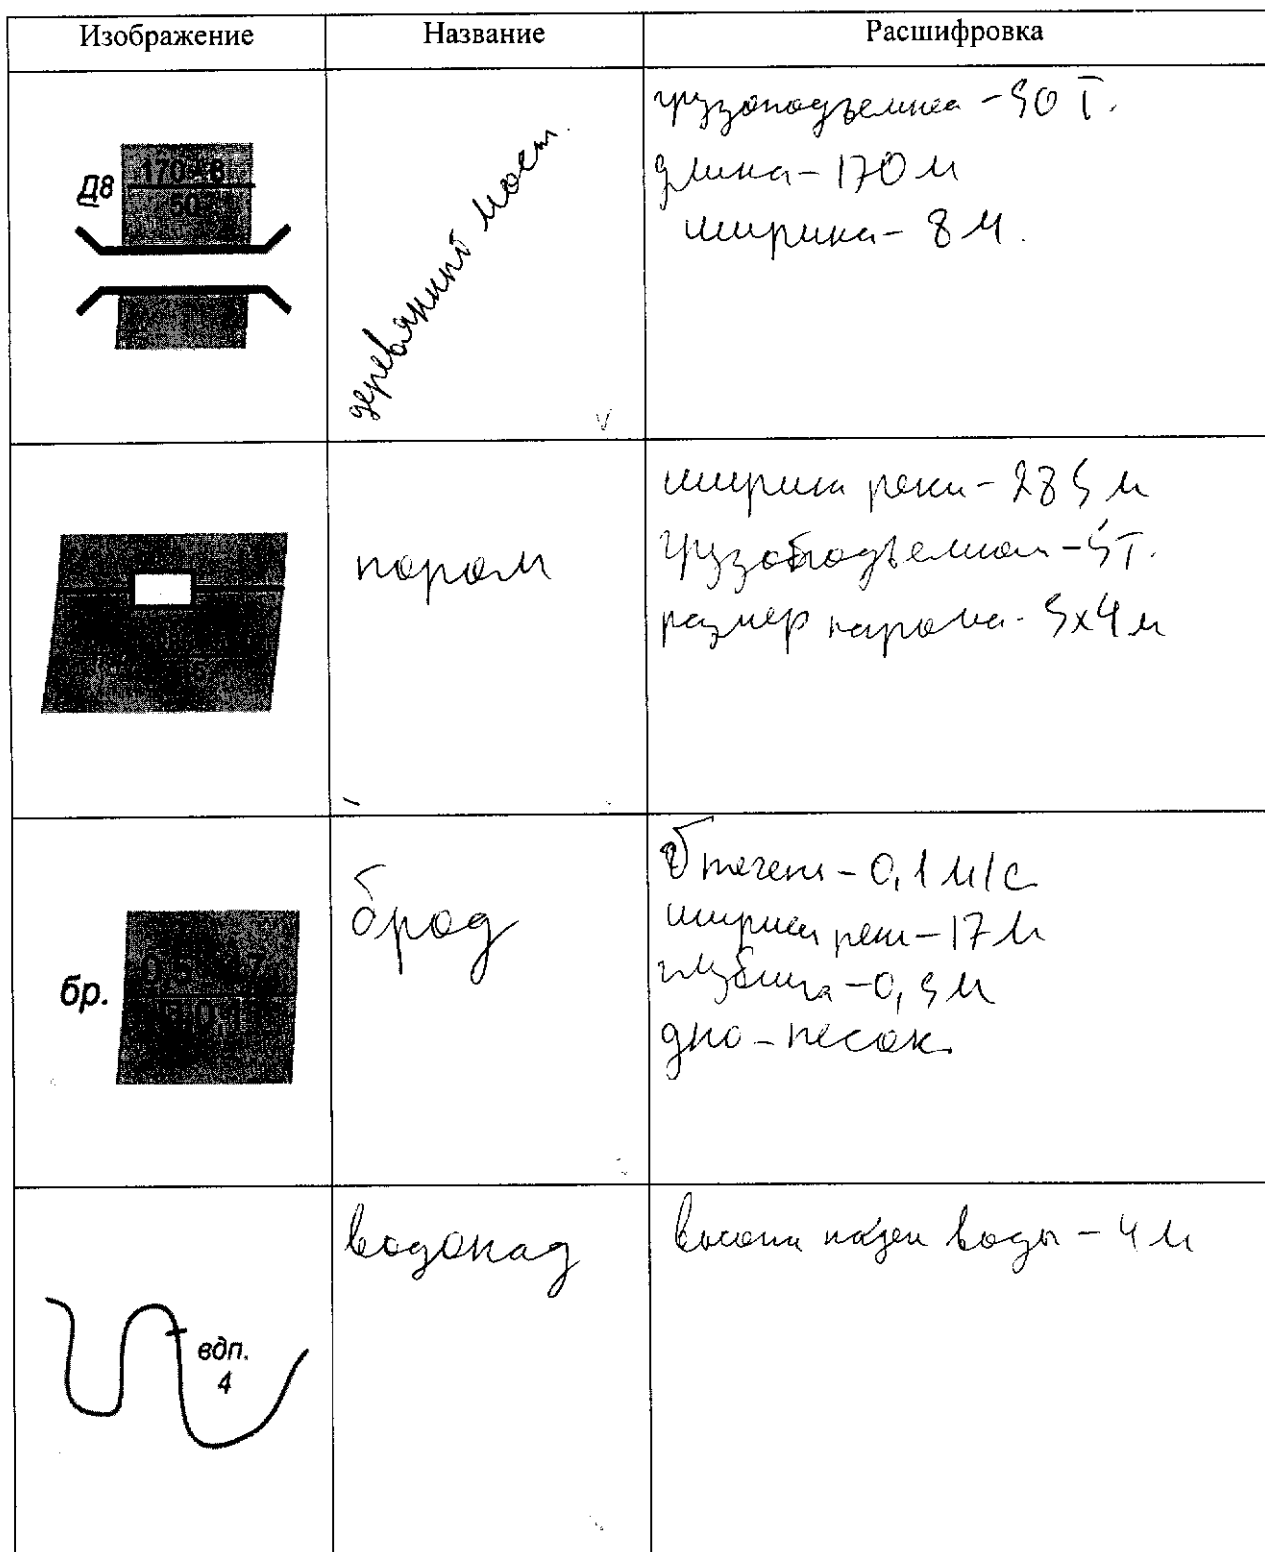 Изображение Название Расшифровка
Д8
170-8
50
деревянный мост.
грузоподъемнос - 50 Т.
длина - 170 м
ширина - 8 м.
паром
ширина реки - 285 м
грузоподъемнос - 5 Т.
размер парома - 5х4 м
бр.
брод
течен - 0,1 м/с
ширина реки - 17 м
глубина - 0,5 м
дно - песок
вдп.
4
водопад
воды - 4 м